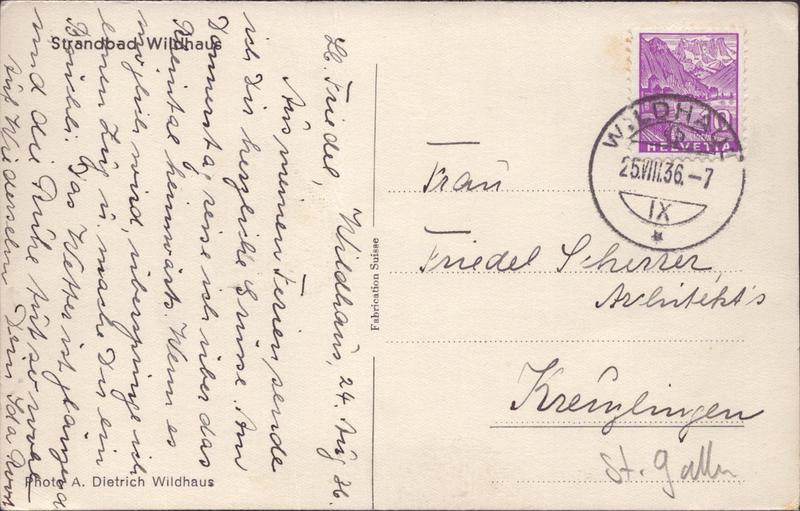 Strandbad Wildhaus
Wildhaus, 24. Aug 36.
Lb. Friedel,
Aus meinen Ferien sende
ich Dir herzliche Grüsse. Am
Donnerstag reise ich über das
Rheintal heimwärts. Wenn es
möglich wird, überspringe ich
einen Zug u. mache Dir ein
Bsüchli. Das Wetter ist glänzend
und die Ruhe tut so wohl
Auf Wiedersehn Dein Ida
Photo A. Dietrich Wildhaus
Fabrication Suisse
HELVETIA
WILDHAUS
25.VIII.36.–7
IX
Frau
Friedel Scherrer,
Architekt's
Kreuzlingen
St. Gallen